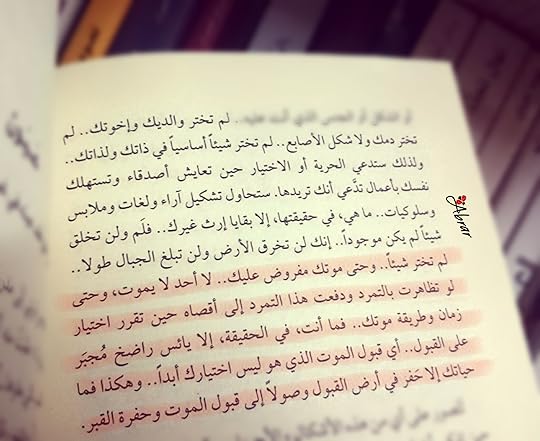 لم تختر والديك وإخوتك.. لم
تختر دمك ولا شكل الأصابع.. لم تختر شيئاً أساسياً في ذاتك ولذاتك..
ولذلك ستدعي الحرية أو الاختيار حين تعايش أصدقاء وتستهلك
نفسك بأعمال تدَّعي أنك تريدها. ستحاول تشكيل آراء ولغات وملابس
وسلوكيات.. ما هي، في حقيقتها، إلا بقايا إرث غيرك.. فلَم ولن تخلق
شيئاً لم يكن موجوداً.. إنك لن تخرق الأرض ولن تبلغ الجبال طولا..
لم تختر شيئاً.. وحتى موتك مفروض عليك.. لا أحد لا يموت، وحتى
لو تظاهرت بالتمرد ودفعت هذا التمرد إلى أقصاه حين تقرر اختيار
زمان وطريقة موتك.. فما أنت، في الحقيقة، إلا يائس راضخ مُجبَر
على القبول.. أي قبول الموت الذي هو ليس اختيارك أبداً.. وهكذا فما
حياتك إلا حَفر في أرض القبول وصولاً إلى قبول الموت وحفرة القبر.
Abrar